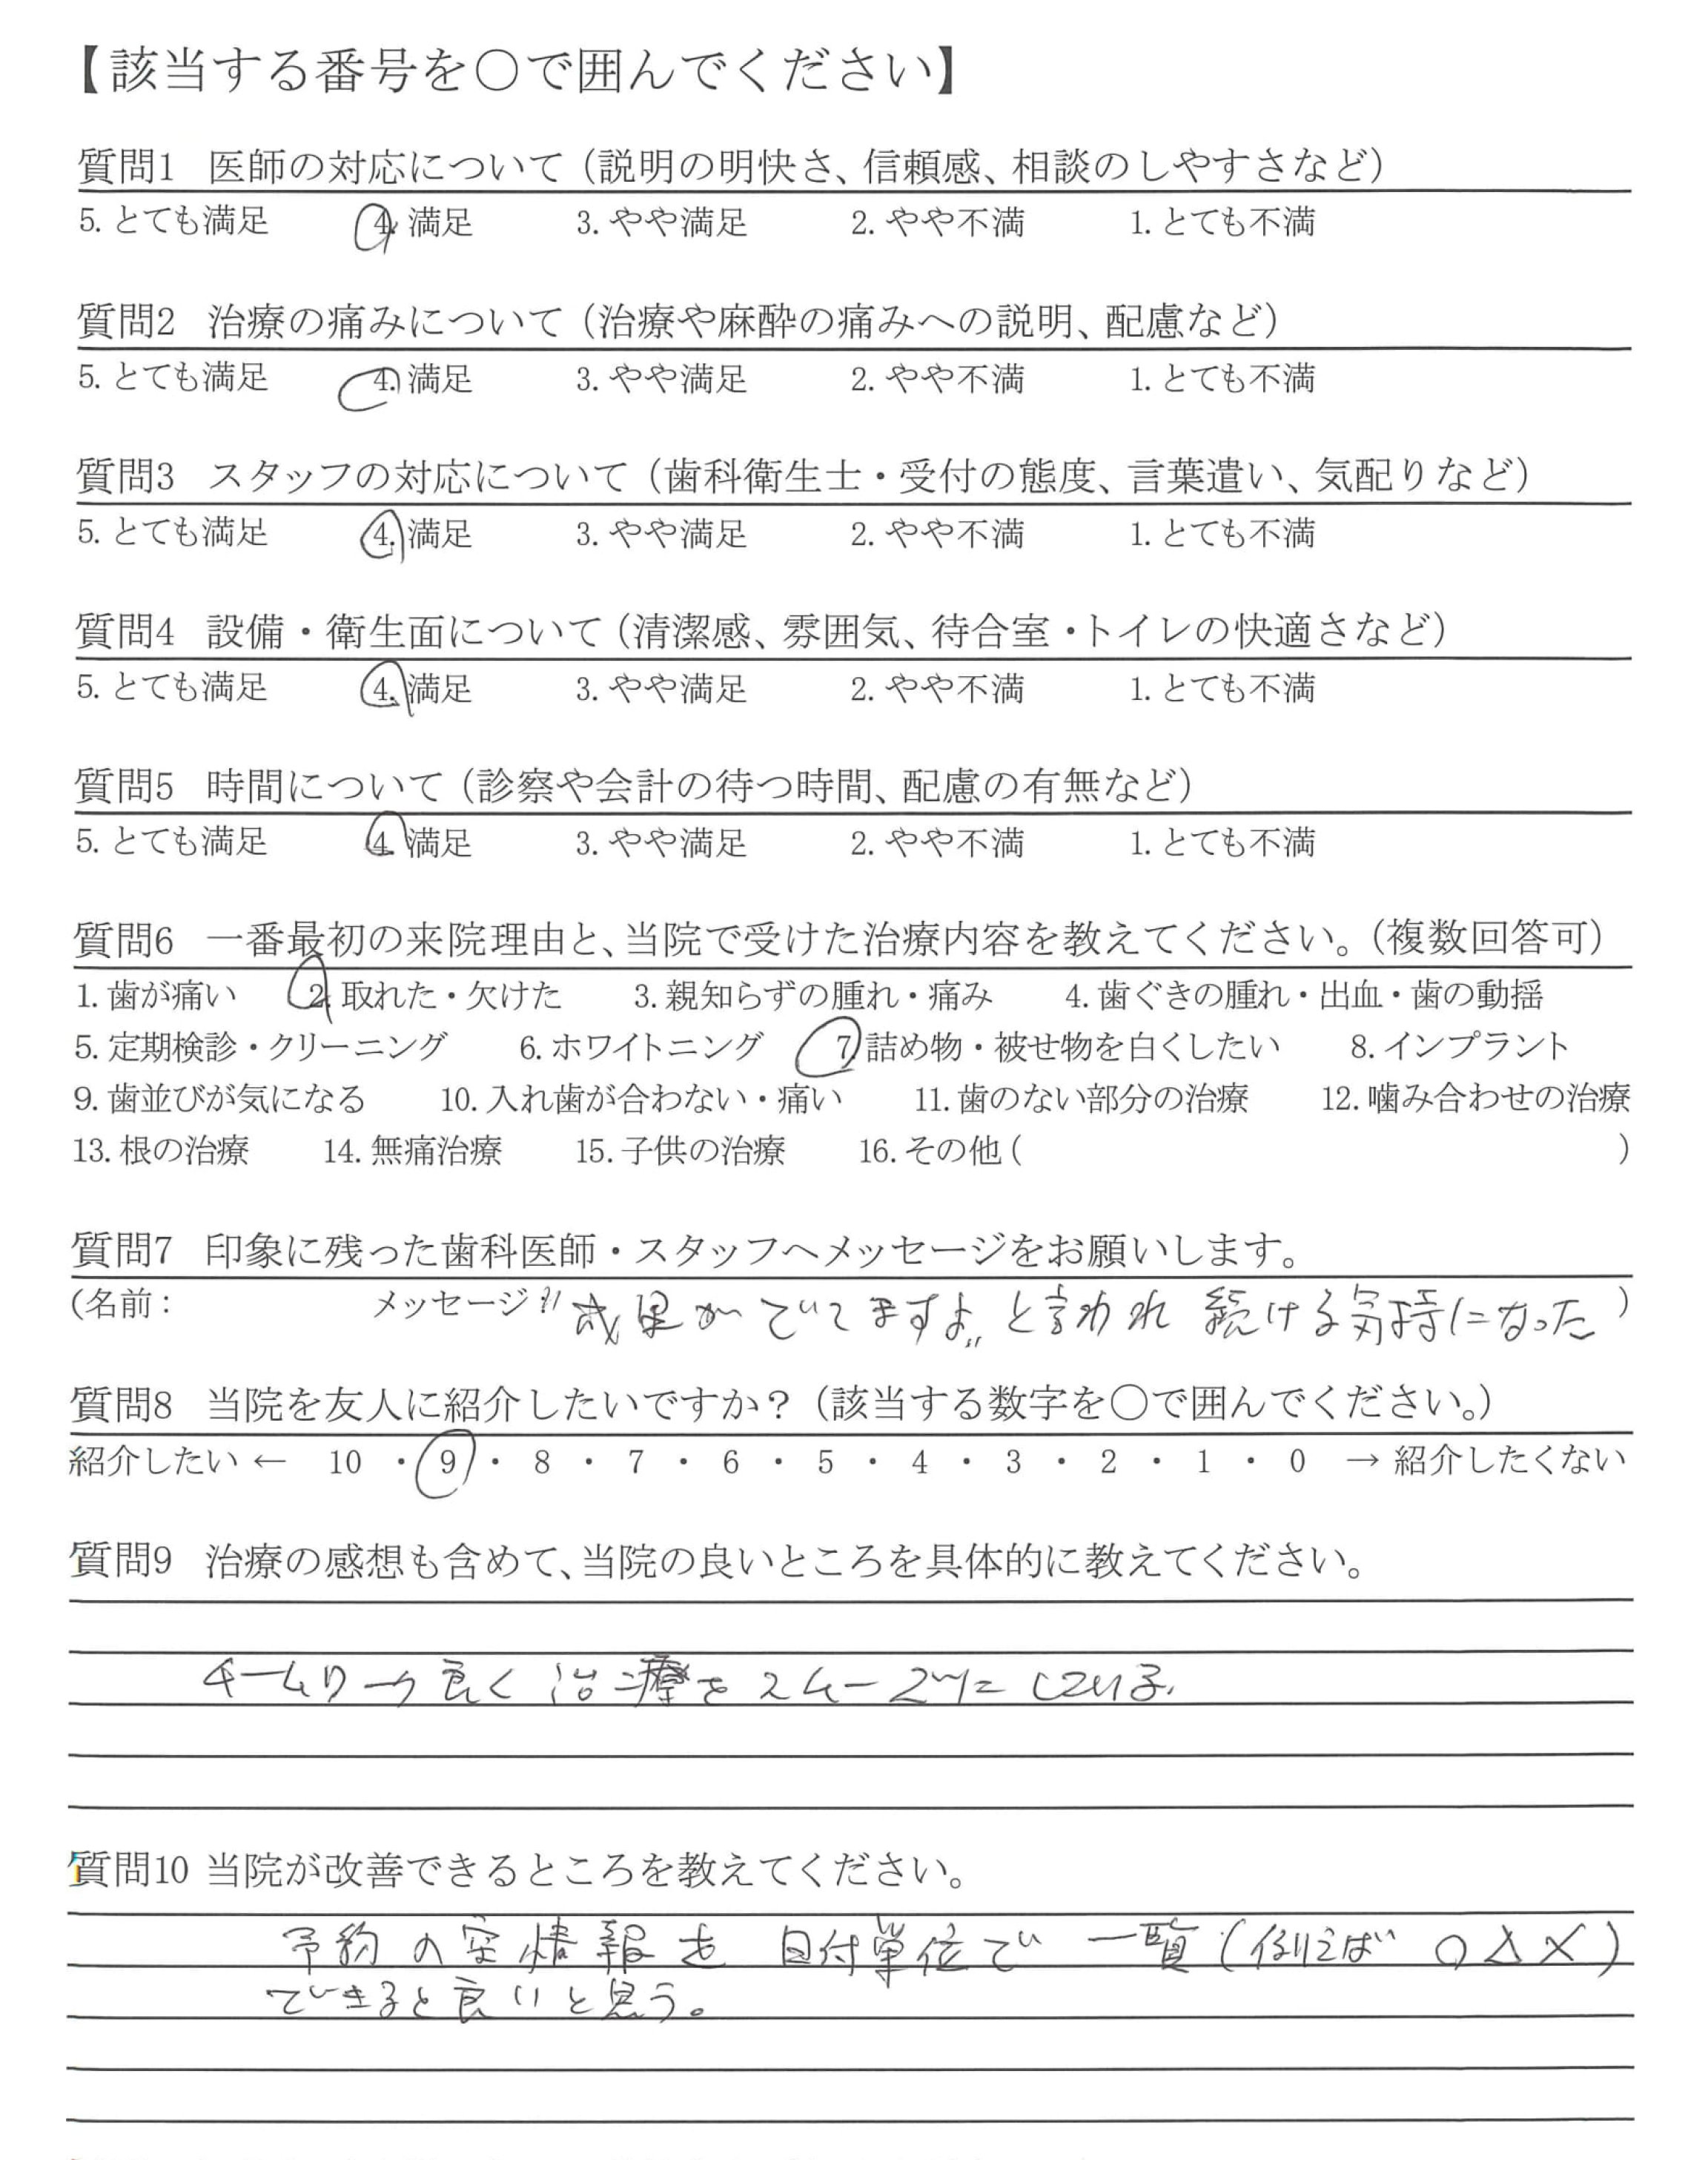 【該当する番号を〇で囲んでください】
質問1 医師の対応について（説明の明快さ、信頼感、相談のしやすさなど）
5. とても満足 4. 満足 3. やや満足 2. やや不満 1. とても不満
質問2 治療の痛みについて（治療や麻酔の痛みへの説明、配慮など）
5. とても満足 4. 満足 3. やや満足 2. やや不満 1. とても不満
質問3 スタッフの対応について（歯科衛生士・受付の態度、言葉遣い、気配りなど）
5. とても満足 4. 満足 3. やや満足 2. やや不満 1. とても不満
質問4 設備・衛生面について（清潔感、雰囲気、待合室・トイレの快適さなど）
5. とても満足 4. 満足 3. やや満足 2. やや不満 1. とても不満
質問5 時間について（診察や会計の待つ時間、配慮の有無など）
5. とても満足 4. 満足 3. やや満足 2. やや不満 1. とても不満
質問6 一番最初の来院理由と、当院で受けた治療内容を教えてください。（複数回答可）
1. 歯が痛い 2. 取れた・欠けた 3. 親知らずの腫れ・痛み 4. 歯ぐきの腫れ・出血・歯の動揺
5. 定期検診・クリーニング 6. ホワイトニング 7. 詰め物・被せ物を白くしたい 8. インプラント
9. 歯並びが気になる 10. 入れ歯が合わない・痛い 11. 歯のない部分の治療 12. 噛み合わせの治療
13. 根の治療 14. 無痛治療 15. 子供の治療 16. その他（ ）
質問7 印象に残った歯科医師・スタッフへメッセージをお願いします。
（名前： メッセージ：〃成果がでてますよ〃と言われ 続ける気持になった）
質問8 当院を友人に紹介したいですか？（該当する数字を〇で囲んでください。）
紹介したい ← 10 ・ 9 ・ 8 ・ 7 ・ 6 ・ 5 ・ 4 ・ 3 ・ 2 ・ 1 ・ 0 → 紹介したくない
質問9 治療の感想も含めて、当院の良いところを具体的に教えてください。
チームワーク良く 治療をスムーズに している。
質問10 当院が改善できるところを教えてください。
予約の空情報を 日付単位で 一覧（例えば ○△×）
できると良いと思う。